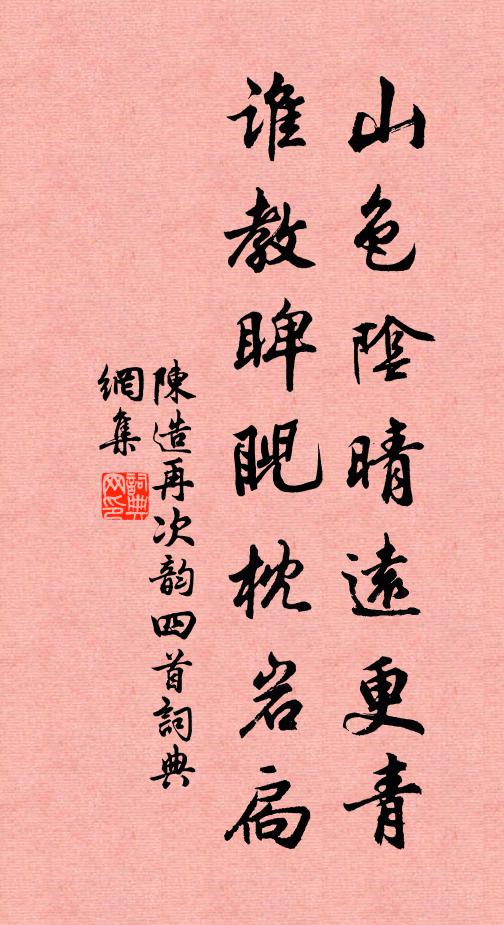 山色陰晴遠更青
誰教睥睨枕岩扃
陳造再次韵四首詞典
網集
詞典网印